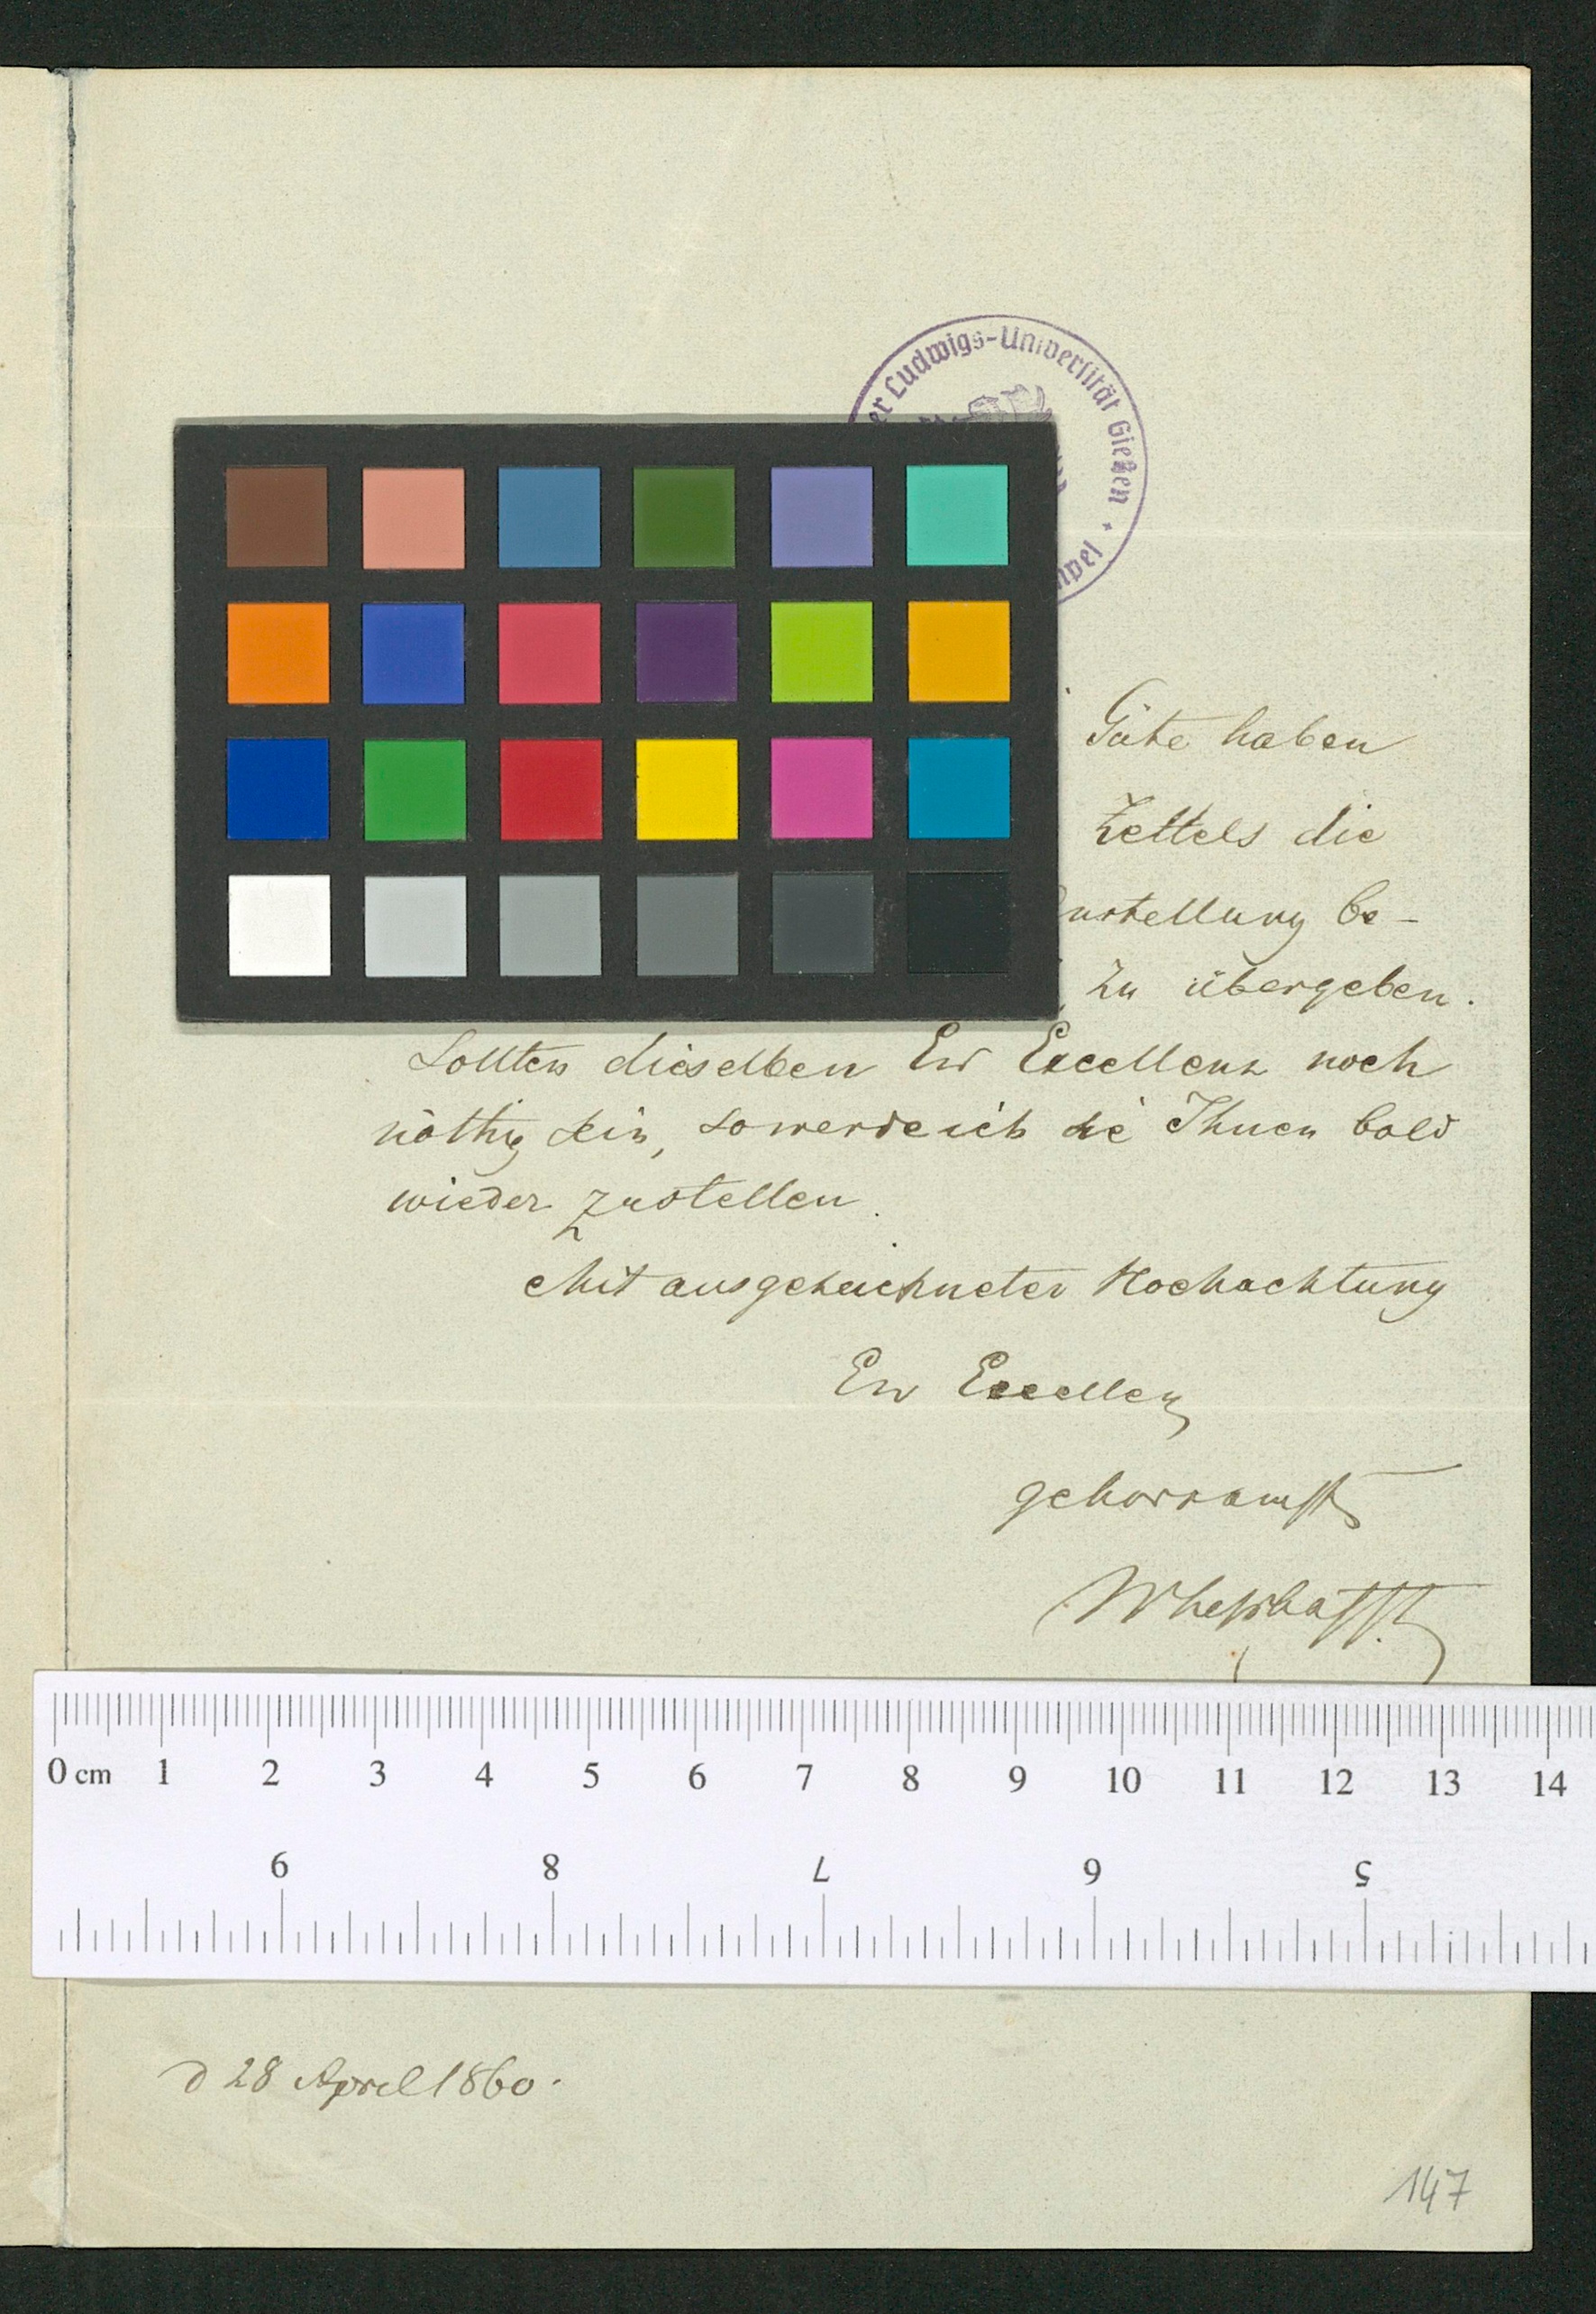 Ludwigs-Universität Gießen
Güte haben
Zettels die
be-
zu übergeben.
Sollten dieselben Ew Excellenz noch
nöthig sein, so werde ich sie Ihnen bald
wieder zustellen.
Mit ausgezeichneter Hochachtung
Ew Excellenz
gehorsamst
0 cm 1 2 3 4 5 6 7 8 9 10 11 12 13 14
9 8 7 6 5
d 28 April 1860.
147